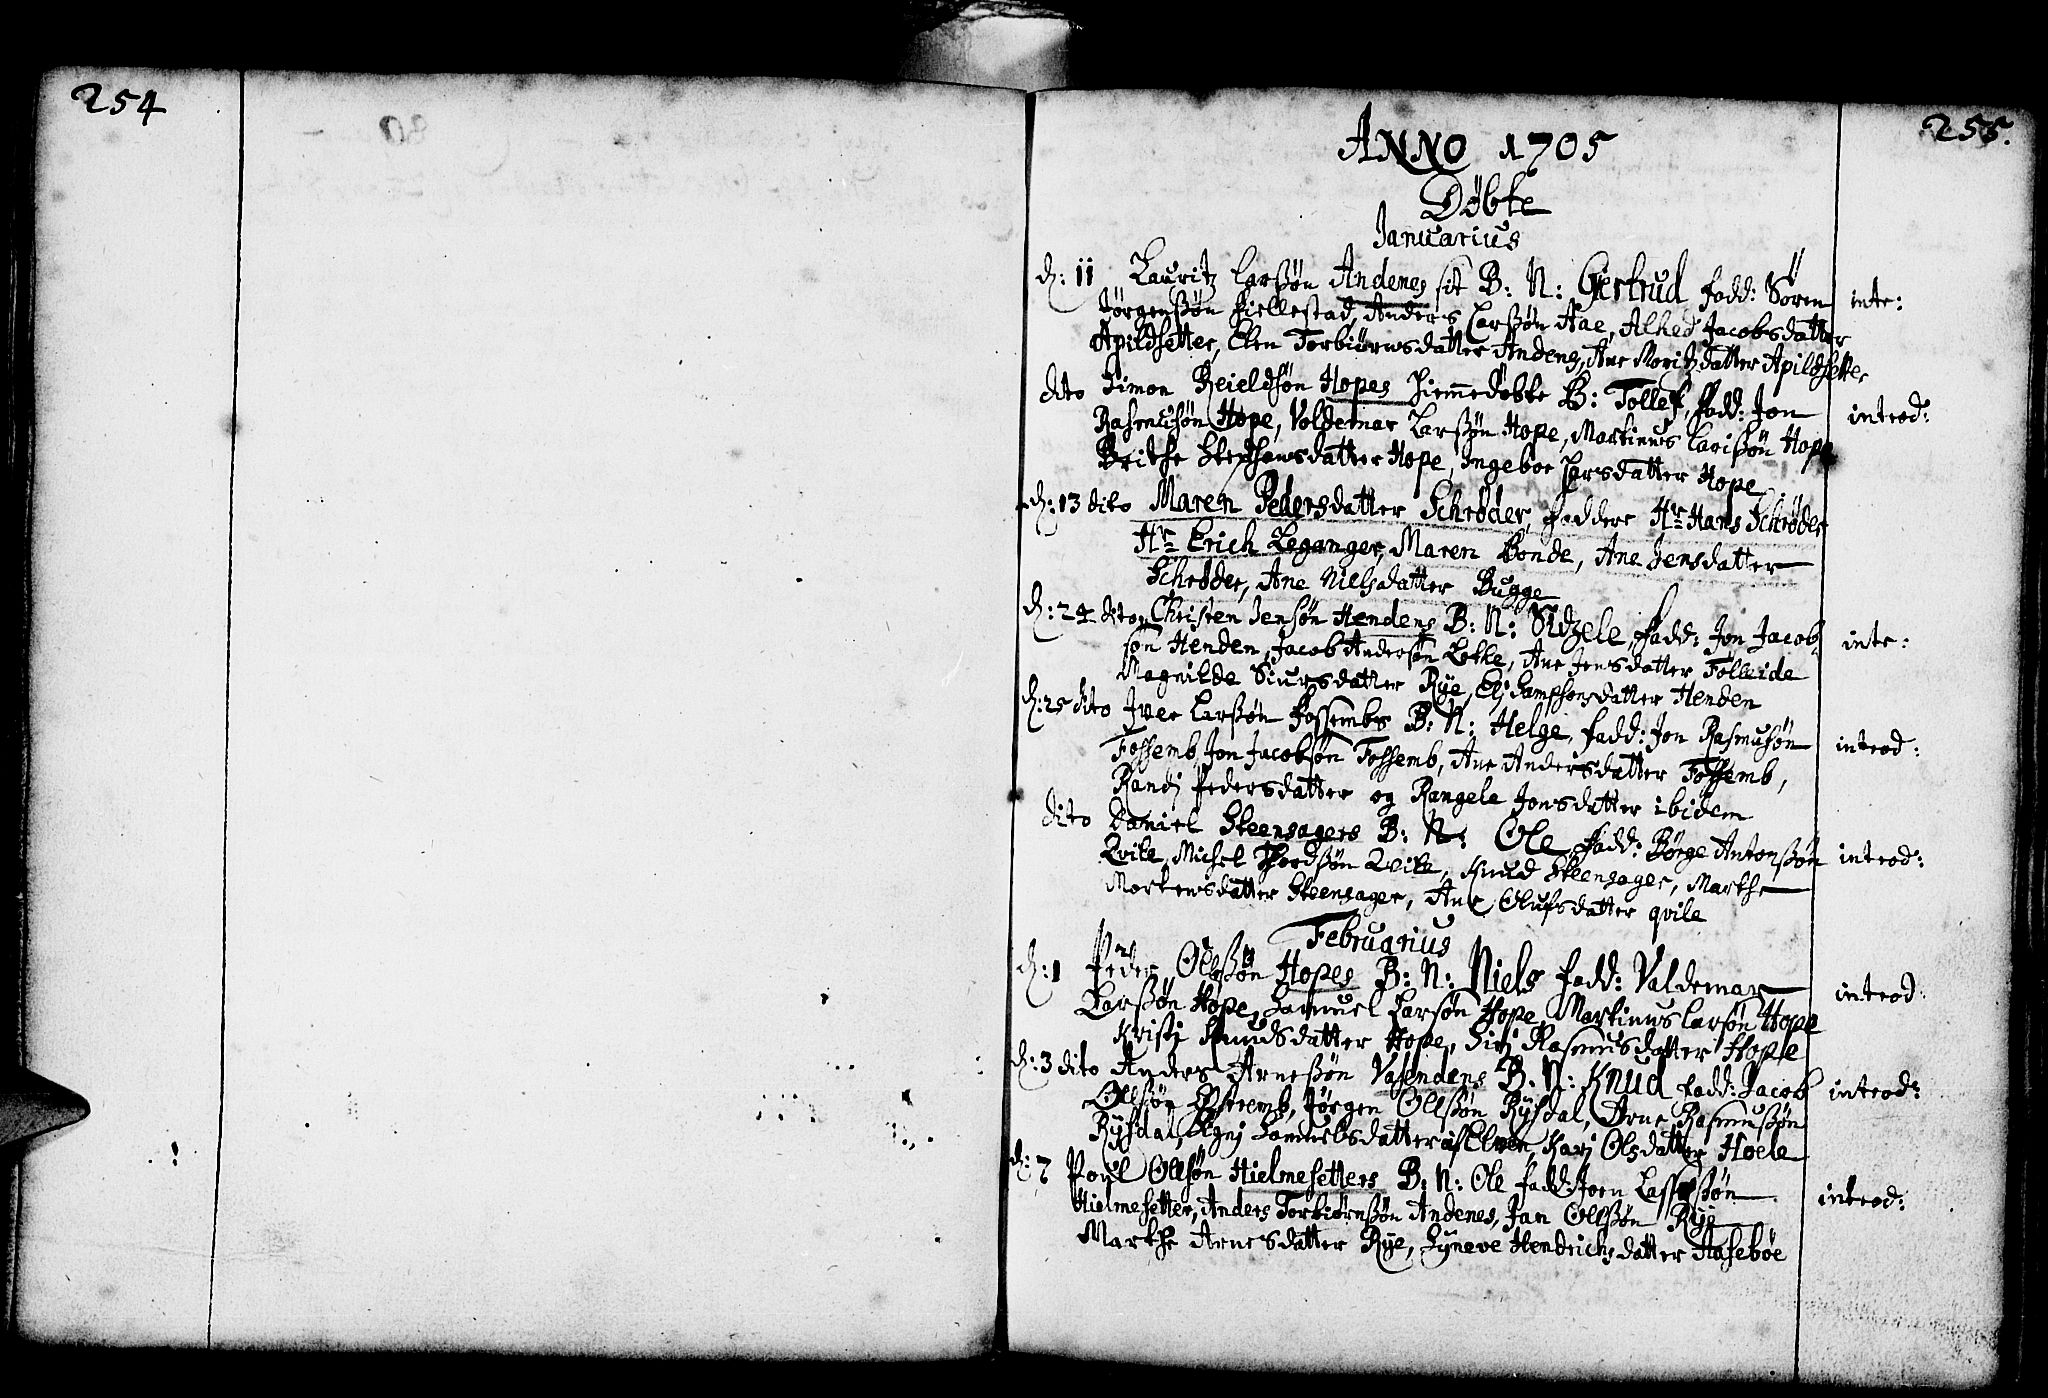 254
255.
ANNO 1705
Döbte
Januarius
d: 11 Lauritz Larßön Andenes sit B: N: Giertrud fadd: Sören inte:
Jörgenßön Hiellestad, Anders Larßön Aae, Alhed Jacobsdatter
Apildsetter, Elen Torbiörnsdatter Andenes, Ane Moritzdatter Apildsetter
dito Simon Reieldsön Hopes hiemedöbte B: Tollef, fadd: Jon introd:
Rasmusön Hope, Voldemar Larßön Hope, Martinus Larißön Hope
Brithe Stephensdatter Hope, Ingebor Larsdatter Hope
d: 13 dito Maren Pedersdatter Schröder, faddere Hr Hans Schröder
Hr Erich Leganger, Maren Bonde, Ane Jensdatter
Schröder, Ane Nielsdatter Bugge
d: 24 dito Christen Jensön Hendens B: N: Sidzele, fadd: Jon Jacob- inte:
sön Henden, Jacob Andersön Lothe, Ane Jensdatter Folleide
Magnilde Siursdatter Rye, Elj Samsonsdatter Henden
d: 25 dito Iver Larßön Fossembs B: N: Helge, fadd: Jon Rasmusön introd:
Fossemb, Jon Jacobsön Fossemb, Ane Andersdatter Fossemb,
Randj Pedersdatter og Rangele Jonsdatter ibidem
dito Daniel Steensagers B: N: Ole, fadd: Börge Antonßön introd:
Qvile, Michel Thordßön Qvile, Knud Steensager, Marthe
Mortensdatter Steensager, Ane Olufsdatter qvile
Februarius
d: 1 Peder Olßön Hopes B: N: Niels fadd: Valdemar introd:
Larßön Hope, Samuel Larsön Hope, Martinus Larsön Hope
Kristj Knudsdatter Hope, Sirj Rasmusdatter Hope
d: 3 dito Anders Arneßön Vasendens B: N: Knud fadd: Jacob introd:
Olßön Östremb, Jörgen Olßön Rysdal, Arne Rasmußön
Rysdal, Agnj Samuelsdatter Elven, Karj Olsdatter Hoele
d: 7 Poul Olsön Hielmesetters B: N: Ole fadd: Joen Lasseßön introd:
Hielmesetter, Anders Torbiörnßön Andenes, Jan Olßön Rye
Marthe Arnesdatter Rye, Syneve Hendrichsdatter Aaseböe